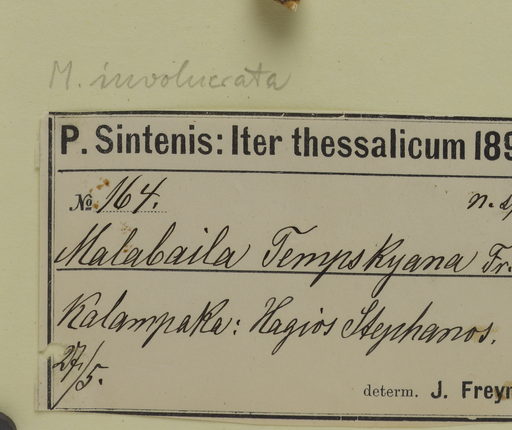 M. involucrata
P. Sintenis: Iter thessalicum 189
№ 164. n. sp
Malabaila Tempskyana Fr.
Kalampaka: Hagios Stephanos.
27/5.
determ. J. Freyn